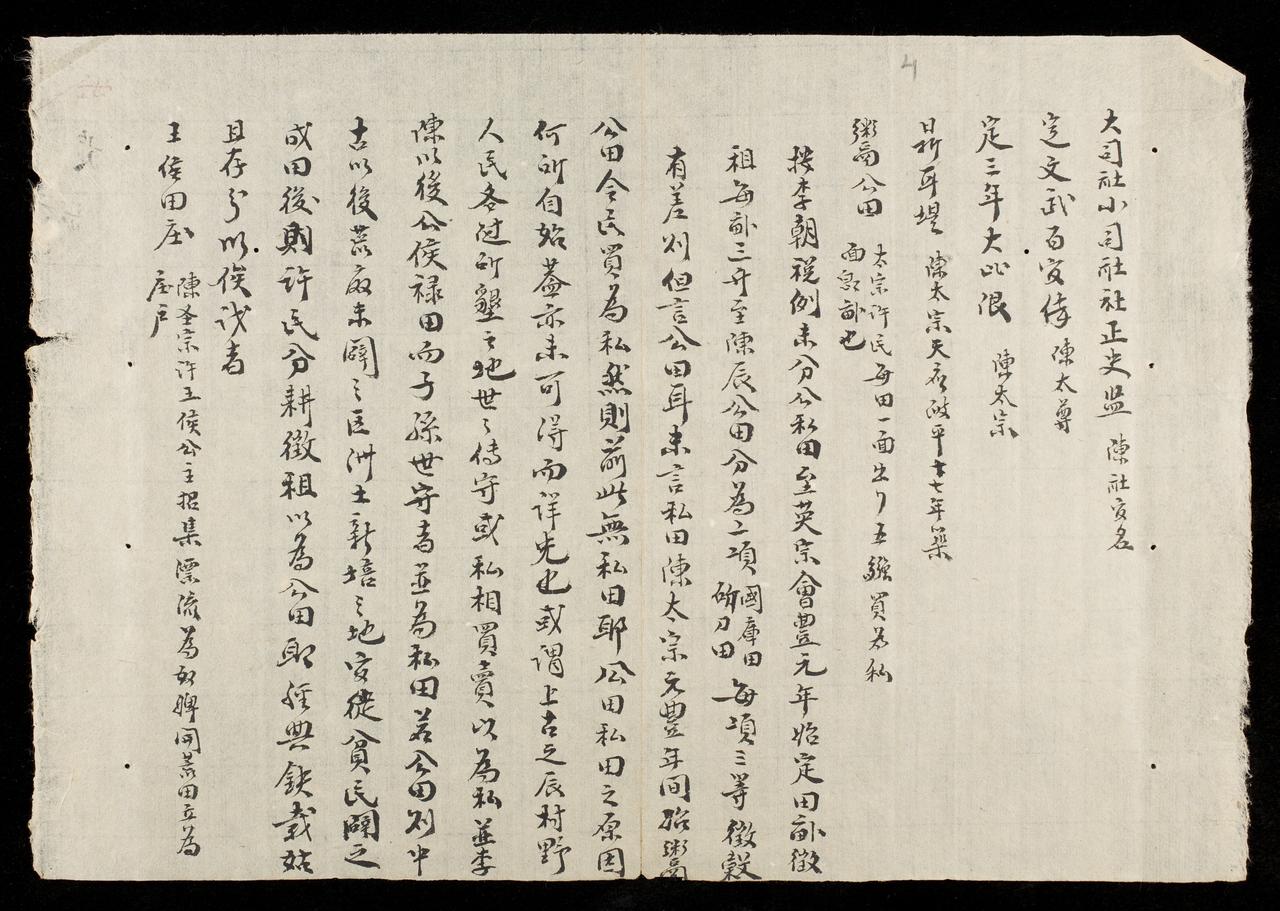 4
大司社小司社社正史監 陳社官名
定文武百官俸 陳太尊
定三年大比限 陳太宗
鼎耳堤 陳太宗天應政平十七年築
粥公田 太宗許民每田一面出〢五鏹買為私
面急畝也
按李朝税例未分公私田至英宗會豊元年始定田畝徵
租每畝三升至陳辰公田分為二項 國庫田 斫刀田 每項三等徵穀
有差別但言公田耳未言私田陳太宗元豊年間始粥
公田令民買為私然則前此無私田耶公田私田之原因
何所自始蓋亦未可得而詳也或謂上古之辰村野
人民各從所墾之地世〻傳守或私相買賣以為私並李
陳以後公侯禄田而子孫世守者並為私田若公田則中
古以後荒廢未闢之區洲土新培之地官徒貧民闢之
成田後則許民分耕徵租以為公田耶經典缺載姑
且存分以俟识者
王侯田庄 陳圣宗許王侯公主招集漂流為奴婢開荒田立為
庄户